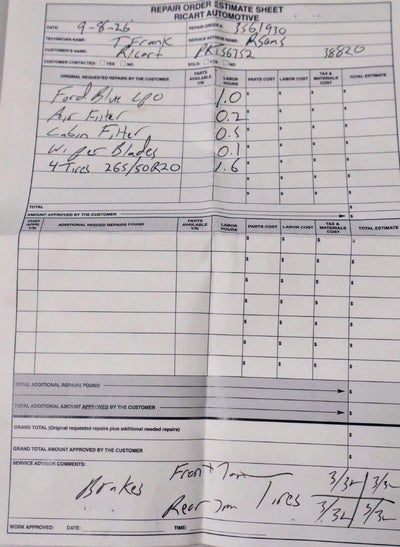 REPAIR ORDER ESTIMATE SHEET
RICART AUTOMOTIVE
DATE: 9-8-26 REPAIR ORDER #: 3561930
TECHNICIAN NAME: T Frank SERVICE ADVISOR NAME:
CUSTOMER'S NAME: Ricart 38820
CUSTOMER CONTACTED: YES NO SOLD: YES NO
ORIGINAL REQUESTED REPAIRS BY THE CUSTOMER PARTS AVAILABLE Y/N LABOR HOURS PARTS COST LABOR COST TAX & MATERIALS COST TOTAL ESTIMATE
Ford Blue 1.0 $ $ $ $
Air Filter 0.2 $ $ $ $
Cabin Filter 0.5 $ $ $ $
Wiper Blades 0.1 $ $ $ $
4 Tires 265/50R20 1.6 $ $ $ $
$ $ $ $
TOTAL $
AMOUNT APPROVED BY THE CUSTOMER $
CUST. APPR. Y/N ADDITIONAL NEEDED REPAIRS FOUND PARTS AVAILABLE Y/N LABOR HOURS PARTS COST LABOR COST TAX & MATERIALS COST TOTAL ESTIMATE
$ $ $ $
$ $ $ $
$ $ $ $
$ $ $ $
$ $ $ $
$ $ $ $
$ $ $ $
TOTAL ADDITIONAL REPAIRS FOUND $
TOTAL ADDITIONAL AMOUNT APPROVED BY THE CUSTOMER $
GRAND TOTAL (Original requested repairs plus additional needed repairs) $
GRAND TOTAL AMOUNT APPROVED BY THE CUSTOMER $
SERVICE ADVISOR COMMENTS:
Front 7mm 3/32 3/32
Brakes Rear 7mm Tires 3/32 3/32
WORK APPROVED: DATE: TIME: